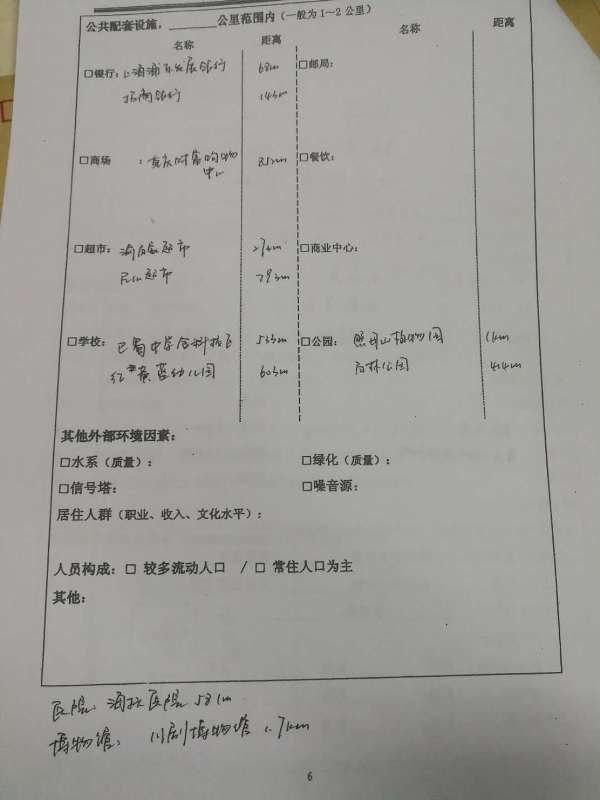 公共配套设施，________公里范围内（一般为1－2公里）
名称 距离 名称 距离
□银行：上海浦东发展银行 68m □邮局：
招商银行 143m
□商场 ：重庆时常购物 352m □餐饮：
中心
□超市： 超市 274m □商业中心：
超市 293m
□学校：巴蜀中学 533m □公园：照母山植物园 1km
红黄蓝幼儿园 603m 石林公园 414m
其他外部环境因素：
□水系（质量）： □绿化（质量）：
□信号塔： □噪音源：
居住人群（职业、收入、文化水平）：
人员构成：□ 较多流动人口 / □ 常住人口为主
其他：
医院： 医院 581m
博物馆： 川剧博物馆 1.7km
6